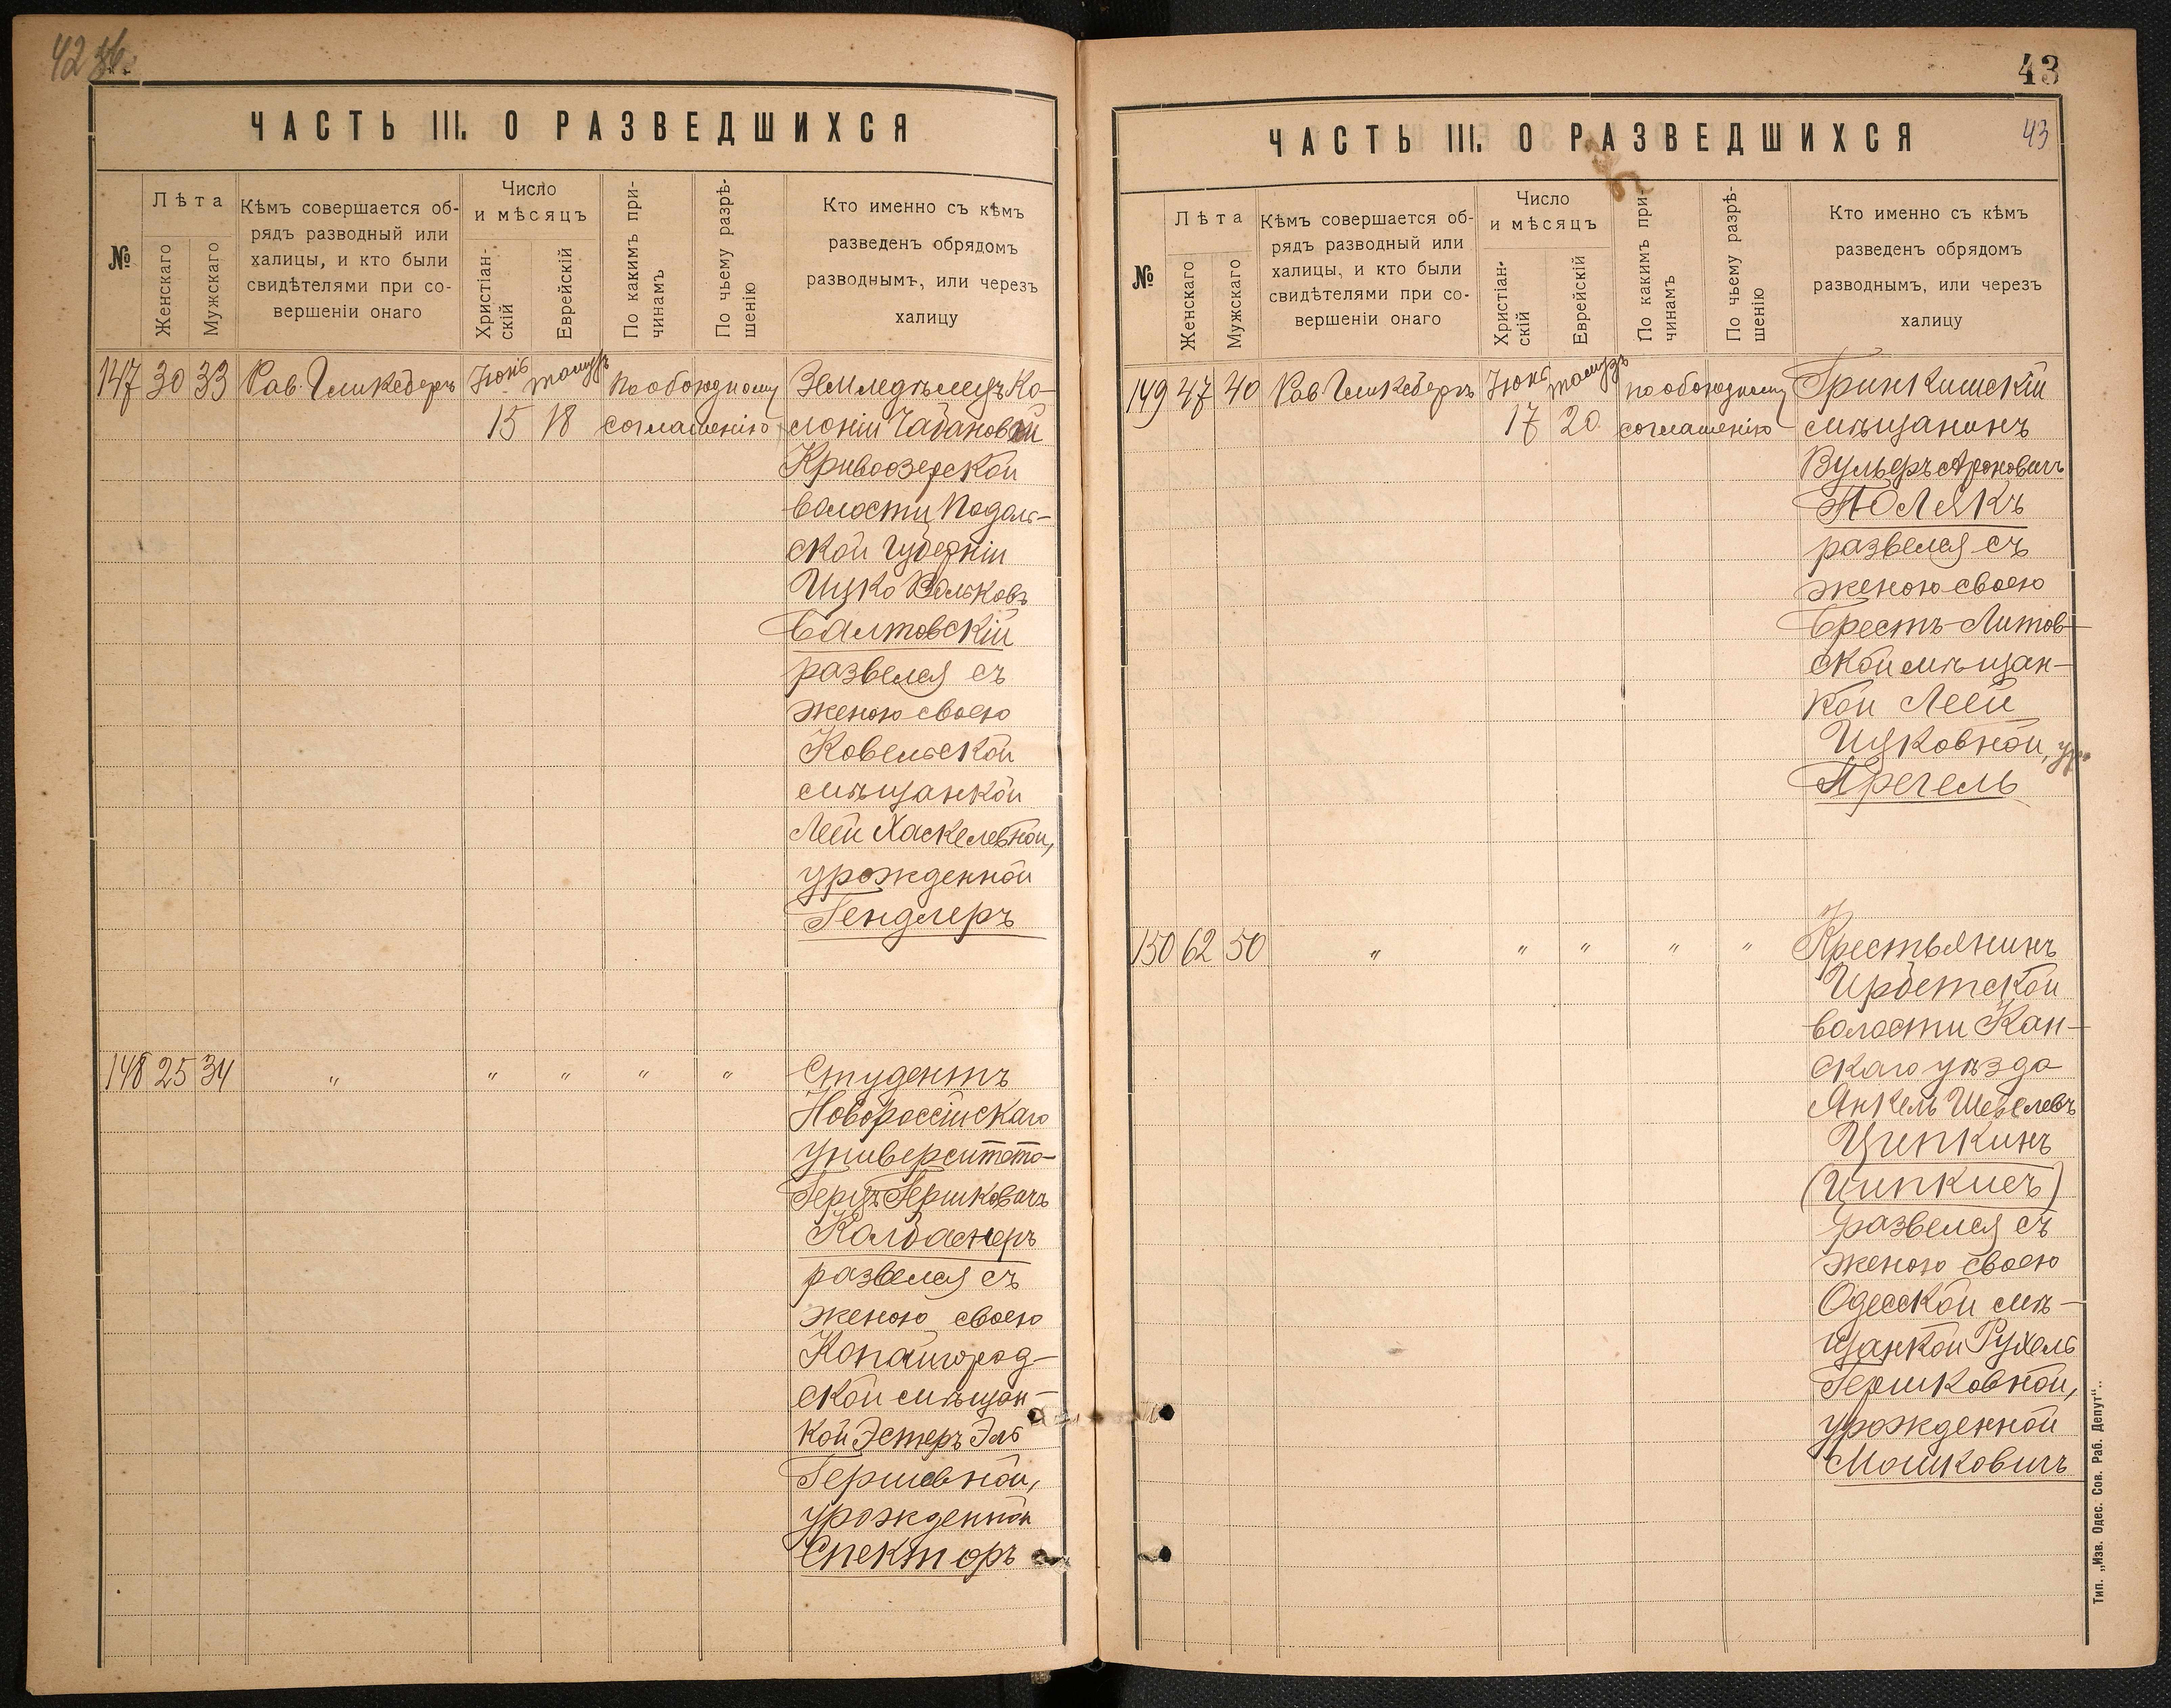 42 об.
ЧАСТЬ III. О РАЗВЕДШИХСЯ
№
Лѣта
Женскаго
Мужскаго
Кѣмъ совершается об-
рядъ разводный или
халицы, и кто были
свидѣтелями при со-
вершеніи онаго
Число
и мѣсяцъ
Христіан-
скій
Еврейскій
По какимъ при-
чинамъ
По чьему разрѣ-
шенію
Кто именно съ кѣмъ
разведенъ обрядомъ
разводнымъ, или черезъ
халицу
147 30 33 Рав. Гликсбергъ Іюнь тамузъ по обоюдному Землѣделецъ Ко-
15 18 соглашенію лоніи Чабановой
Кривоозерской
волости Подоль-
ской Губерніи
Ицко Вольковъ
Балтовскій
развелся съ
женою своею
Ковельской
мѣщанкой
Леей Хаскелевной,
урожденной
Гендлеръ
148 25 34 " " " " " Студентъ
Новороссійскаго
университета
Герцъ Гершковичъ
Колбаснеръ
развелся съ
женою своею
Копайгород-
ской мѣщан-
кой Эстеръ Эль
Гершевной,
урожденной
Спекторъ
43
ЧАСТЬ III. О РАЗВЕДШИХСЯ
43
№
Лѣта
Женскаго
Мужскаго
Кѣмъ совершается об-
рядъ разводный или
халицы, и кто были
свидѣтелями при со-
вершеніи онаго
Число
и мѣсяцъ
Христіан-
скій
Еврейскій
По какимъ при-
чинамъ
По чьему разрѣ-
шенію
Кто именно съ кѣмъ
разведенъ обрядомъ
разводнымъ, или черезъ
халицу
149 47 40 Рав. Гликсбергъ Іюнь тамузъ по обоюдному Гринкишскій
17 20 соглашенію мѣщанинъ
Вульфъ Ароновичъ
Полякъ
развелся съ
женою своею
Брестъ-Литов-
ской мѣщан-
кой Леей
Ицковной, ур.
Прегель
150 62 50 " " " " " Крестьянинъ
Ирбетской
волости Кан-
скаго уѣзда
Янкель Шевелевъ
Ципкинъ
(Ципкисъ)
развелся съ
женою своею
Одесской мѣ-
щанкой Рухель
Гершковной,
урожденной
Мошковичъ
Тип. „Изв. Одес. Сов. Раб. Депут"..